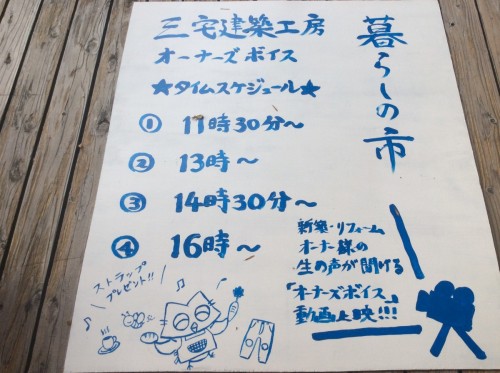 暮らしの市
三宅建築工房
オーナーズボイス
★タイムスケジュール★
① 11時30分～
② 13時～
③ 14時30分～
④ 16時～
新築・リフォーム
オーナー様の
生の声が聞ける
「オーナーズボイス」
動画上映!!!
ストラップ
プレゼント!!